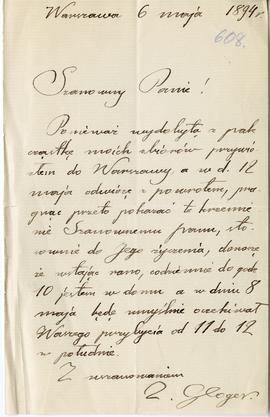 Warszawa 6 maja 1894 r.
608.
Szanowny Panie!
Ponieważ wydobytą z pak
cząstkę moich zbiorów przywio-
złem do Warszawy, a w d. 12
maja odwiozę z powrotem, pra-
gnąc przeto pokazać te krzemie-
nie Szanownemu Panu, sto-
sownie do Jego życzenia, donoszę
że wstając rano, codziennie do godz
10 jestem w domu a w dniu 8
maja będę umyślnie oczekiwał
Waszego przybycia od 11 do 12
w południe.
Z uszanowaniem
Z. Gloger